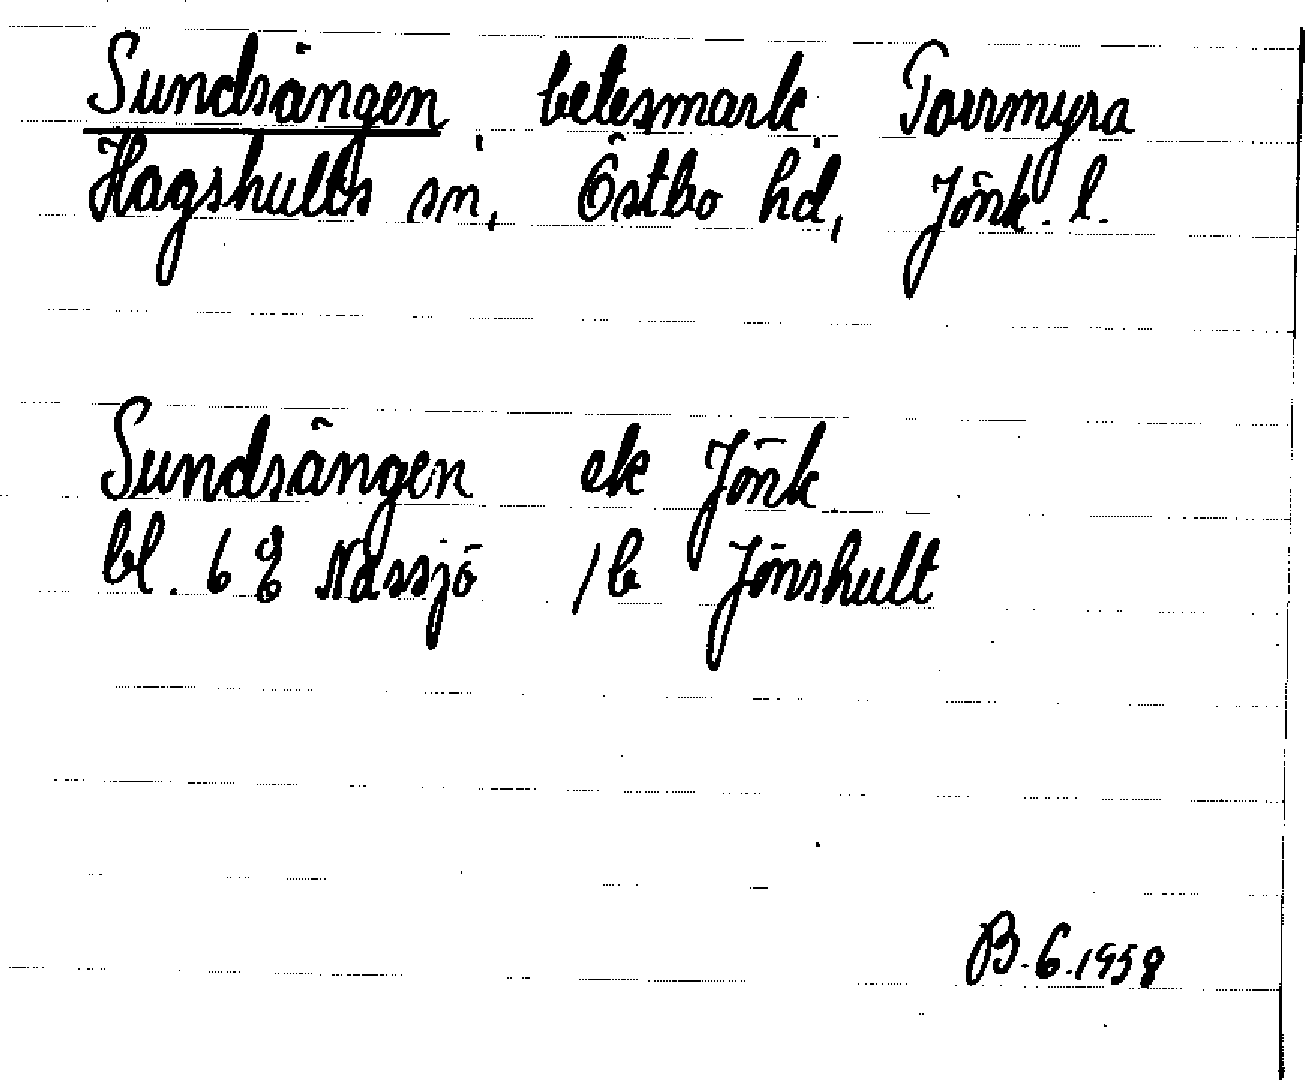 Sundsängen, betesmark, Torrmyra
Hagshults sn, Östbo hd, Jönk. l.
Sundsängen ek Jönk
bl. 6 Nässjö / b Jönshult
B. 6. 1958